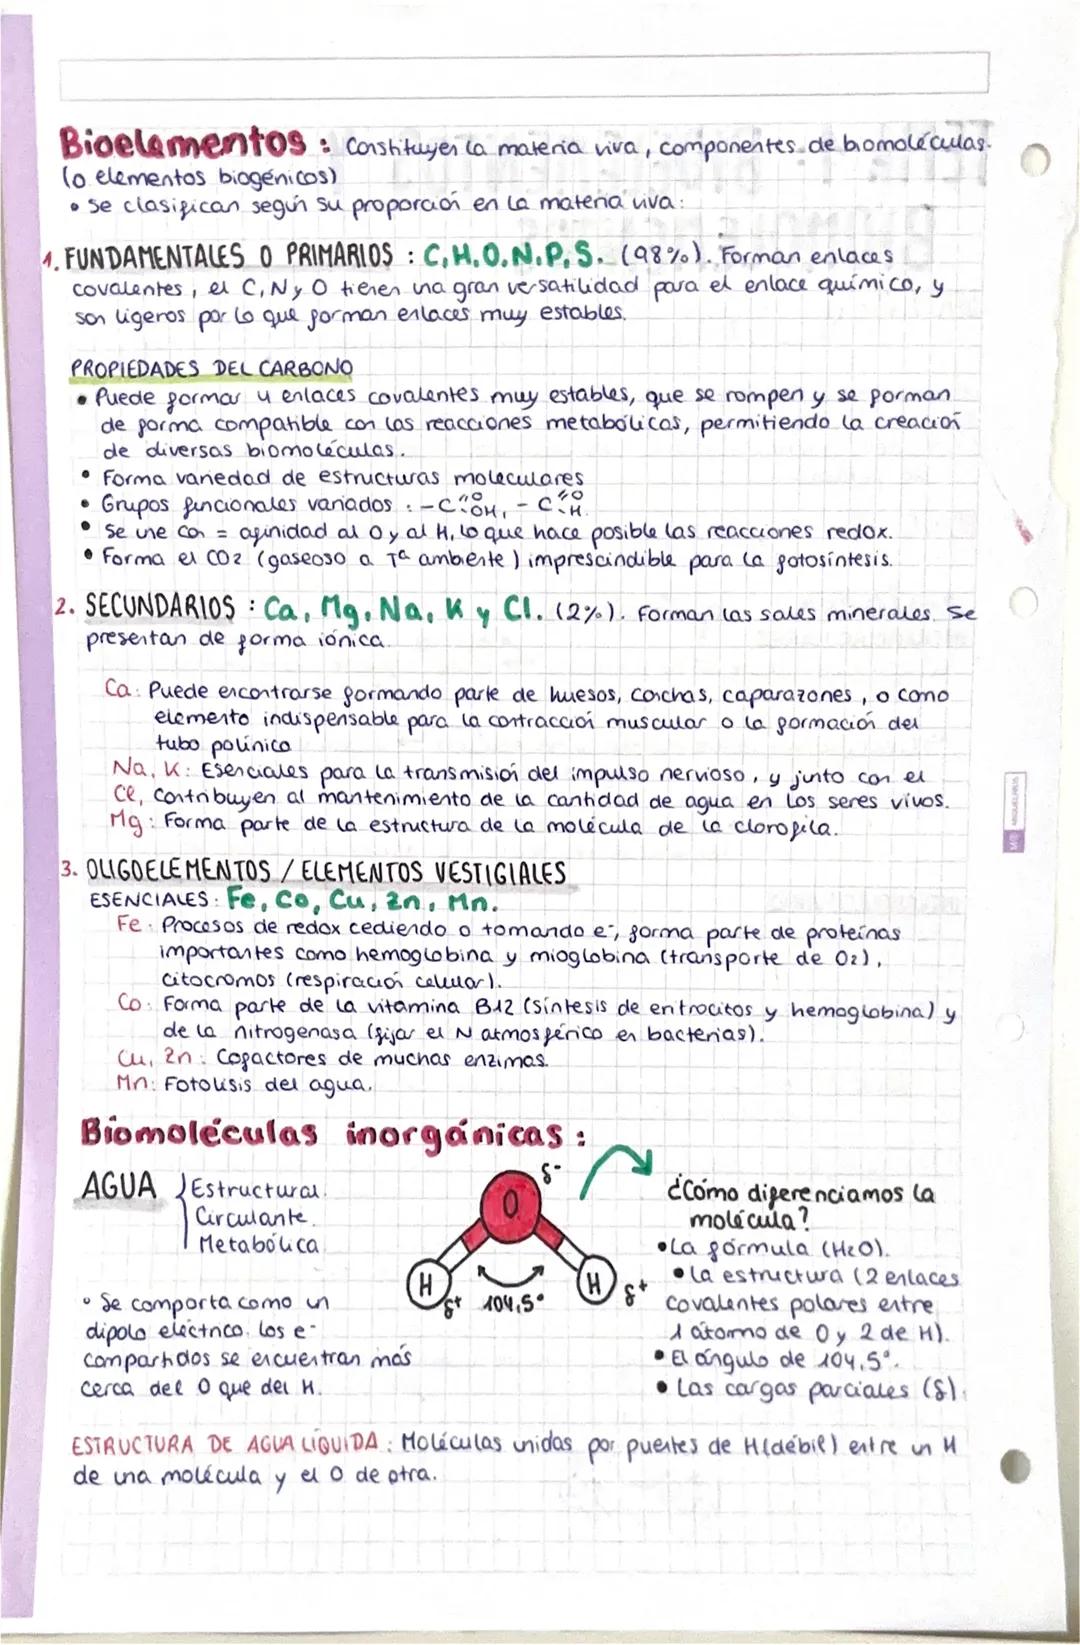 Bioelementos : Constituyen la materia viva, componentes de biomoléculas.
(o elementos biogénicos)
• Se clasifican según su proporción en la materia viva:
1. FUNDAMENTALES O PRIMARIOS : C,H,O,N,P,S. (98%). Forman enlaces
covalentes, el C, N y O tienen una gran versatilidad para el enlace químico, y
son ligeros por lo que forman enlaces muy estables.
PROPIEDADES DEL CARBONO
• Puede formar 4 enlaces covalentes muy estables, que se rompen y se forman
de forma compatible con las reacciones metabólicas, permitiendo la creación
de diversas biomoléculas.
• Forma variedad de estructuras moleculares
• Grupos funcionales variados : -C=O OH, -C=O H.
• Se une con = afinidad al O y al H, lo que hace posible las reacciones redox.
• Forma el CO2 (gaseoso a Tª ambiente) imprescindible para la fotosíntesis.
2. SECUNDARIOS : Ca, Mg, Na, K y Cl. (2%). Forman las sales minerales. Se
presentan de forma iónica.
Ca: Puede encontrarse formando parte de huesos, conchas, caparazones, o como
elemento indispensable para la contracción muscular o la formación del
tubo polínico
Na, K: Esenciales para la transmisión del impulso nervioso, y junto con el
Cl, contribuyen al mantenimiento de la cantidad de agua en los seres vivos.
Mg: Forma parte de la estructura de la molécula de la clorofila.
3. OLIGOELEMENTOS / ELEMENTOS VESTIGIALES
ESENCIALES: Fe, Co, Cu, Zn, Mn.
Fe: Procesos de redox cediendo o tomando e-, forma parte de proteínas
importantes como hemoglobina y mioglobina (transporte de O2),
citocromos (respiración celular).
Co: Forma parte de la vitamina B12 (síntesis de eritrocitos y hemoglobina) y
de la nitrogenasa (fijar el N atmosférico en bacterias).
Cu, Zn: Cofactores de muchas enzimas.
Mn: Fotolisis del agua.
Biomoléculas inorgánicas :
AGUA { Estructural.
Circulante.
Metabólica
• Se comporta como un
dipolo eléctrico. Los e-
compartidos se encuentran más
cerca del O que del H.
O δ-
H δ+ 104,5° H δ+
¿Cómo diferenciamos la
molécula?
• La fórmula (H2O).
• La estructura (2 enlaces
covalentes polares entre
1 átomo de O y 2 de H).
• El ángulo de 104,5°.
• Las cargas parciales (δ).
ESTRUCTURA DE AGUA LÍQUIDA : Moléculas unidas por puentes de H (débil) entre un H
de una molécula y el O de otra.